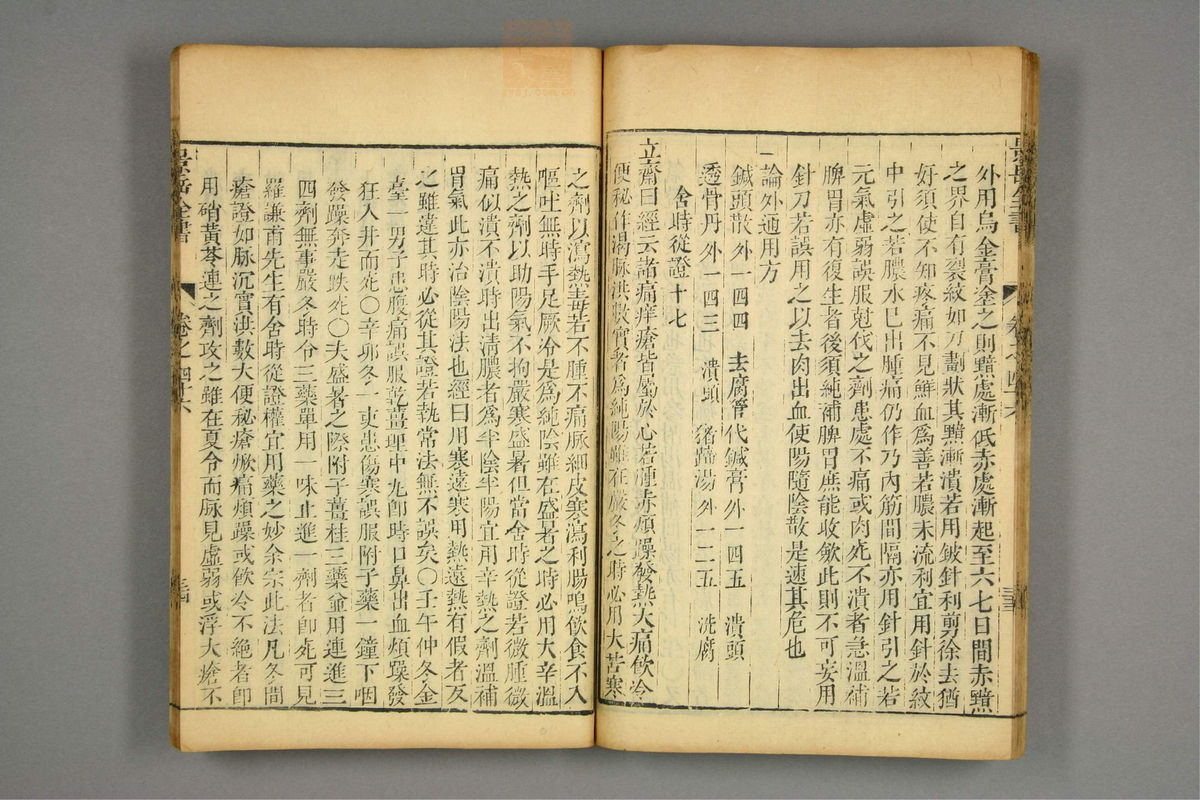 外用烏金膏塗之則黯處漸低赤處漸起至六七日間赤黯
之界自有裂紋如刀劃狀其黯漸潰若用鈹針利剪徐去猶
好須使不知疼痛不見鮮血為善若膿未流利宜用針於紋
中引之若膿水已出腫痛仍作乃內筋間隔亦用針引之若
元氣虛弱誤服尅伐之劑患處不痛或肉死不潰者急溫補
脾胃亦有復生者後須純補脾胃庶能收斂此則不可妄用
針刀若誤用之以去肉出血使陽隨陰散是速其危也
一論外通用方
鍼頭散外一四四 去腐管代鍼膏外一四五 潰頭
透骨丹外一四三 潰頭 豬蹄湯外一二五 洗腐
舍時從證十七
立齋曰經云諸痛痒瘡皆屬於心若腫赤煩躁發熱大痛飲冷
便秘作渴脉洪數實者為純陽雖在嚴冬之時必用大苦寒
景岳全書
卷之四十六
之劑以瀉熱毒若不腫不痛脉細皮寒瀉利腸鳴飲食不入
嘔吐無時手足厥冷是為純陰雖在盛暑之時必用大辛溫
熱之劑以助陽氣不拘嚴寒盛暑但當舍時從證若微腫微
痛似潰不潰時出清膿者為半陰半陽宜用辛熱之劑溫補
胃氣此亦治陰陽法也經曰用寒遠寒用熱遠熱有假者反
之雖違其時必從其證若執常法無不誤矣○壬午仲冬金
臺一男子患腹痛誤服乾薑理中丸即時口鼻出血煩躁發
狂入井而死○辛卯冬一吏患傷寒誤服附子藥一鐘下咽
發躁奔走跌死○夫盛暑之際附子薑桂三藥並用連進三
四劑無事嚴冬時令三藥單用一味止進一劑者即死可見
羅謙甫先生有舍時從證權宜用藥之妙余宗此法凡冬間
瘡證如脉沉實洪數大便秘瘡焮痛煩躁或飲冷不絕者即
用硝黃芩連之劑攻之雖在夏令而脉見虛弱或浮大瘡不
景岳全書
卷之四十六
三十四